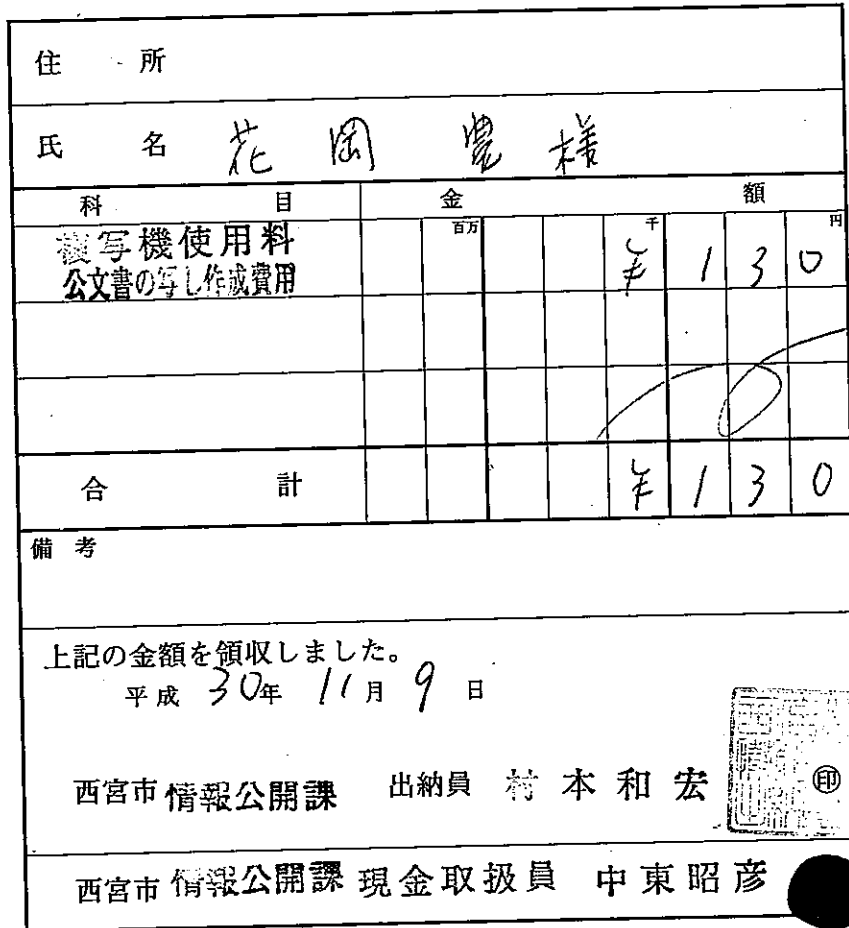 住所
氏名 花岡 豊 様
科目 金額
百万 千 円
複写機使用料 ¥130
公文書の写し作成費用
合計 ¥130
備考
上記の金額を領収しました。
平成 30年 11月 9日
西宮市 情報公開課 出納員 村本和宏 ㊞
西宮市 情報公開課 現金取扱員 中東昭彦